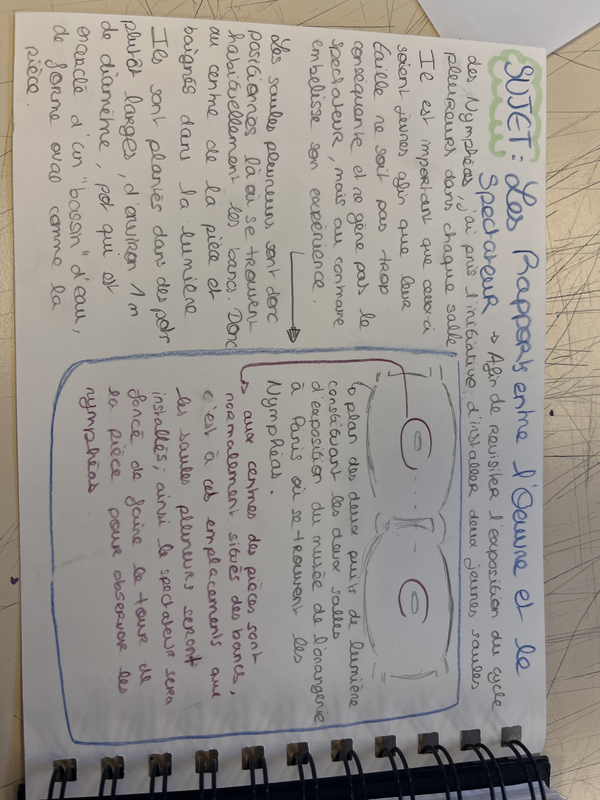 SUJET : Les Rapports entre l'Oeuvre et le
Spectateur → Afin de revisiter l'exposition du cycle
des Nymphéas, j'ai pris l'initiative d'installer deux jeunes saules
pleureurs dans chaque salle.
Il est important que ceux-ci
soient jeunes afin que leur
taille ne soit pas trop
conséquente et ne gêne pas le
spectateur, mais au contraire
embelisse son expérience.
Les saules pleureurs sont donc
positionés là où se trouvent
habituellement les bancs. Donc
au centre de la pièce et
baignés dans la lumière
Ils sont plantés dans des pots
plutôt larges, d'environ 1m
de diamètre, pot qui est
encerclé d'un "bassin" d'eau,
de forme oval comme la
pièce.
↳ plan des deux puits de lumière
constituant les deux salles
d'exposition du musée de l'orangerie
à Paris où se trouvent les
Nymphéas.
↳ aux centres des pièces sont
normalement situés des bancs,
c'est à ces emplacements que
les saules pleureurs seront
installés; ainsi le spectateur sera
forcé de faire le tour de
la pièce pour observer les
nymphéas